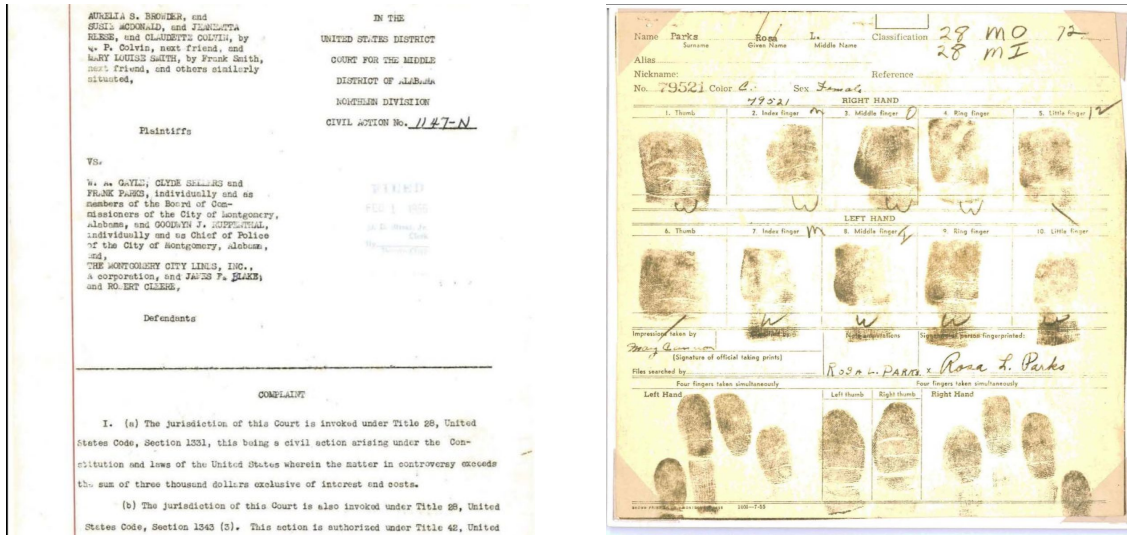 AURELIA S. BROWDER, and
SUSIE McDONALD, and JEANETTA
REESE, and CLAUDETTE COLVIN, by
Q. P. Colvin, next friend, and
MARY LOUISE SMITH, by Frank Smith,
next friend, and others similarly
situated,
Plaintiffs
VS.
W. A. GAYLE, CLYDE SELLERS and
FRANK PARKS, individually and as
members of the Board of Com-
missioners of the City of Montgomery,
Alabama, and GOODWYN J. RUPPENTHAL,
individually and as Chief of Police
of the City of Montgomery, Alabama,
and,
THE MONTGOMERY CITY LINES, INC.,
A corporation, and JAMES F. BLAKE,
and ROBERT CLEERE,
Defendants
IN THE
UNITED STATES DISTRICT
COURT FOR THE MIDDLE
DISTRICT OF ALABAMA
NORTHERN DIVISIION
CIVIL ACTION No. 1147-N
COMPLAINT
I. (a) The jurisdiction of this Court is invoked under Title 28, United
States Code, Section 1331, this being a civil action arising under the Con-
stitution and laws of the United States wherein the matter in controversy exceeds
the sum of three thousand dollars exclusive of interest and costs.
(b) The jurisdiction of this Court is also invoked under Title 28, United
States Code, Section 1343 (3). This action is authorized under Title 42, United
Name Parks Rosa L. Classification 28 MO 12
Surname Given Name Middle Name 28 MI
Alias
Nickname: Reference
No. 79521 Color C. Sex Female
79521 RIGHT HAND
1. Thumb 2. Index finger m 3. Middle finger O 4. Ring finger 5. Little finger 12
W W W
LEFT HAND
6. Thumb 7. Index finger m 8. Middle finger I 9. Ring finger 10. Little finger
W W W W
Impressions taken by Note amputations Signature of person fingerprinted:
Mary Cameron
(Signature of official taking prints)
Files searched by ROSA L. PARKS x Rosa L. Parks
Four fingers taken simultaneously Four fingers taken simultaneously
Left Hand Left thumb Right thumb Right Hand